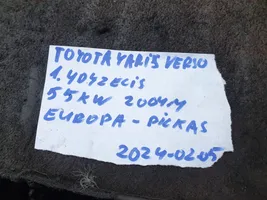 TOYOTA YARIS VERSO
1.4D4DZECIS
55KW 2004M
EUROPA - PILKAS
2024-02-05